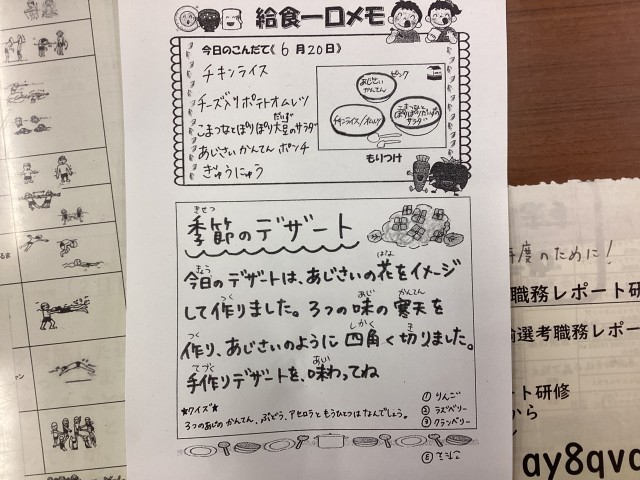 給食一口メモ
今日のこんだて《 6 月 20日》
チキンライス
チーズ入りポテトオムレツ
だいず
こまつなとぽりぽり大豆のサラダ
あじさいかんてんポンチ
ぎゅうにゅう
ピンク
あじさい
かんてん
チキンライス/オムレツ
こまつなと
ぽりぽりだいずの
サラダ
もりつけ
きせつ
季節のデザート
きょう はな
今日のデザートは、あじさいの花をイメージ
つく あじ かんてん
して作りました。3つの味の寒天を
つく しかく き
作り、あじさいのように四角く切りました。
てづく あじ
手作りデザートを、味わってね
★クイズ★
3つのあじのかんてん、ぶどう、アセロラともうひとつはなんでしょう。
①りんご
②ラズベリー
③クランベリー
年度のために!
職務レポート研
選考職務レポー
ート研修
から
ン
ay8qvc